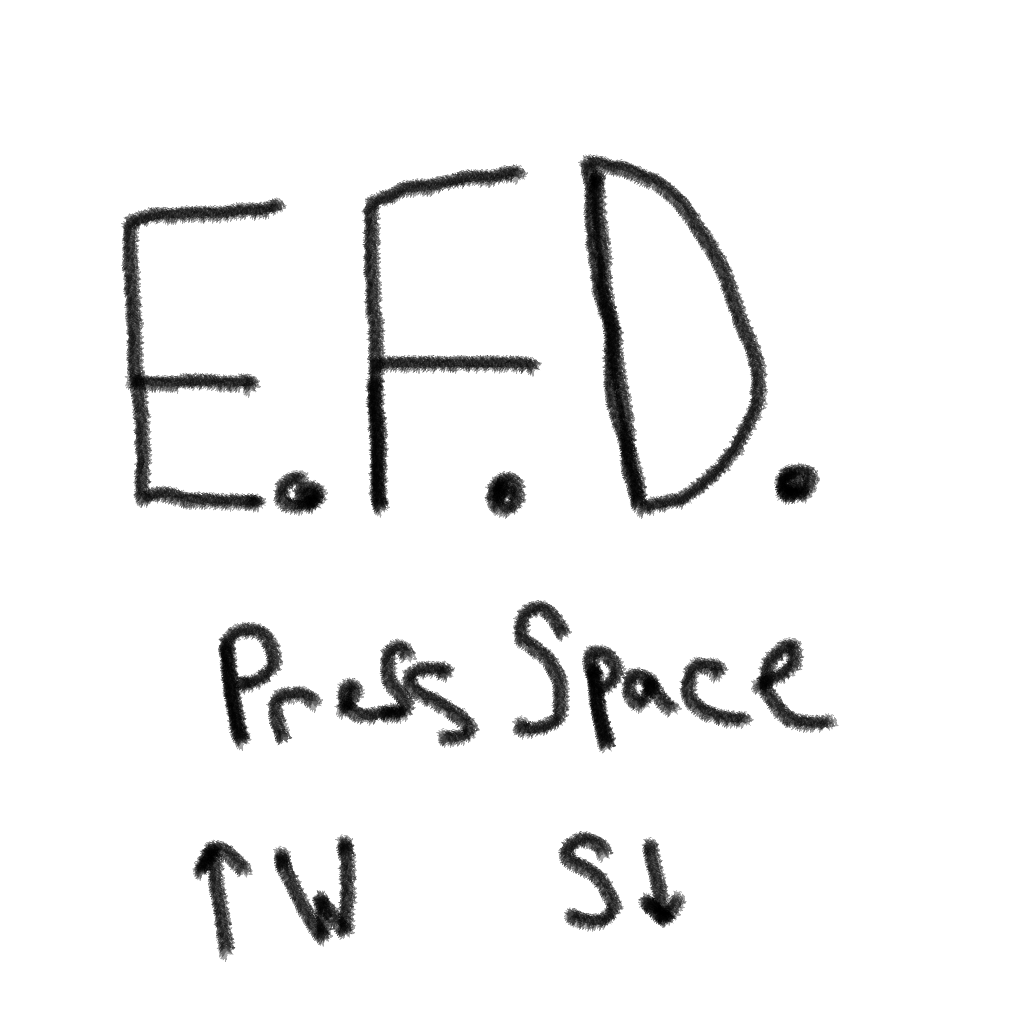 E.F.D.
Press Space
↑ W S ↓